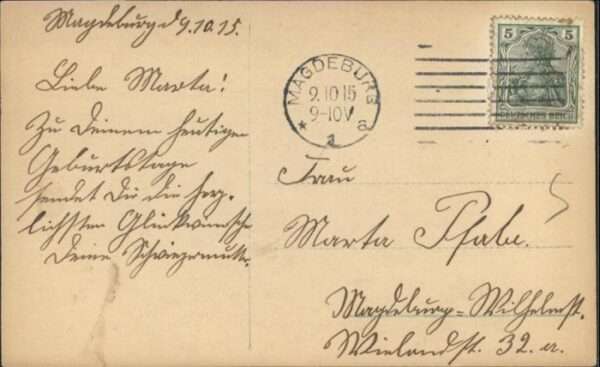 Magdeburg d 9.10.15.
Liebe Marta!
Zu Deinem heutigen
Geburtstage
sendet Dir die herz-
lichsten Glückwünsche
Deine Schwiegermutter.
MAGDEBURG
9.10.15
9-10V
* 1 a
5 5
DEUTSCHES REICH
Frau
Marta Pfabe.
Magdeburg-Wilhelmst.
Wielandst. 32. a.